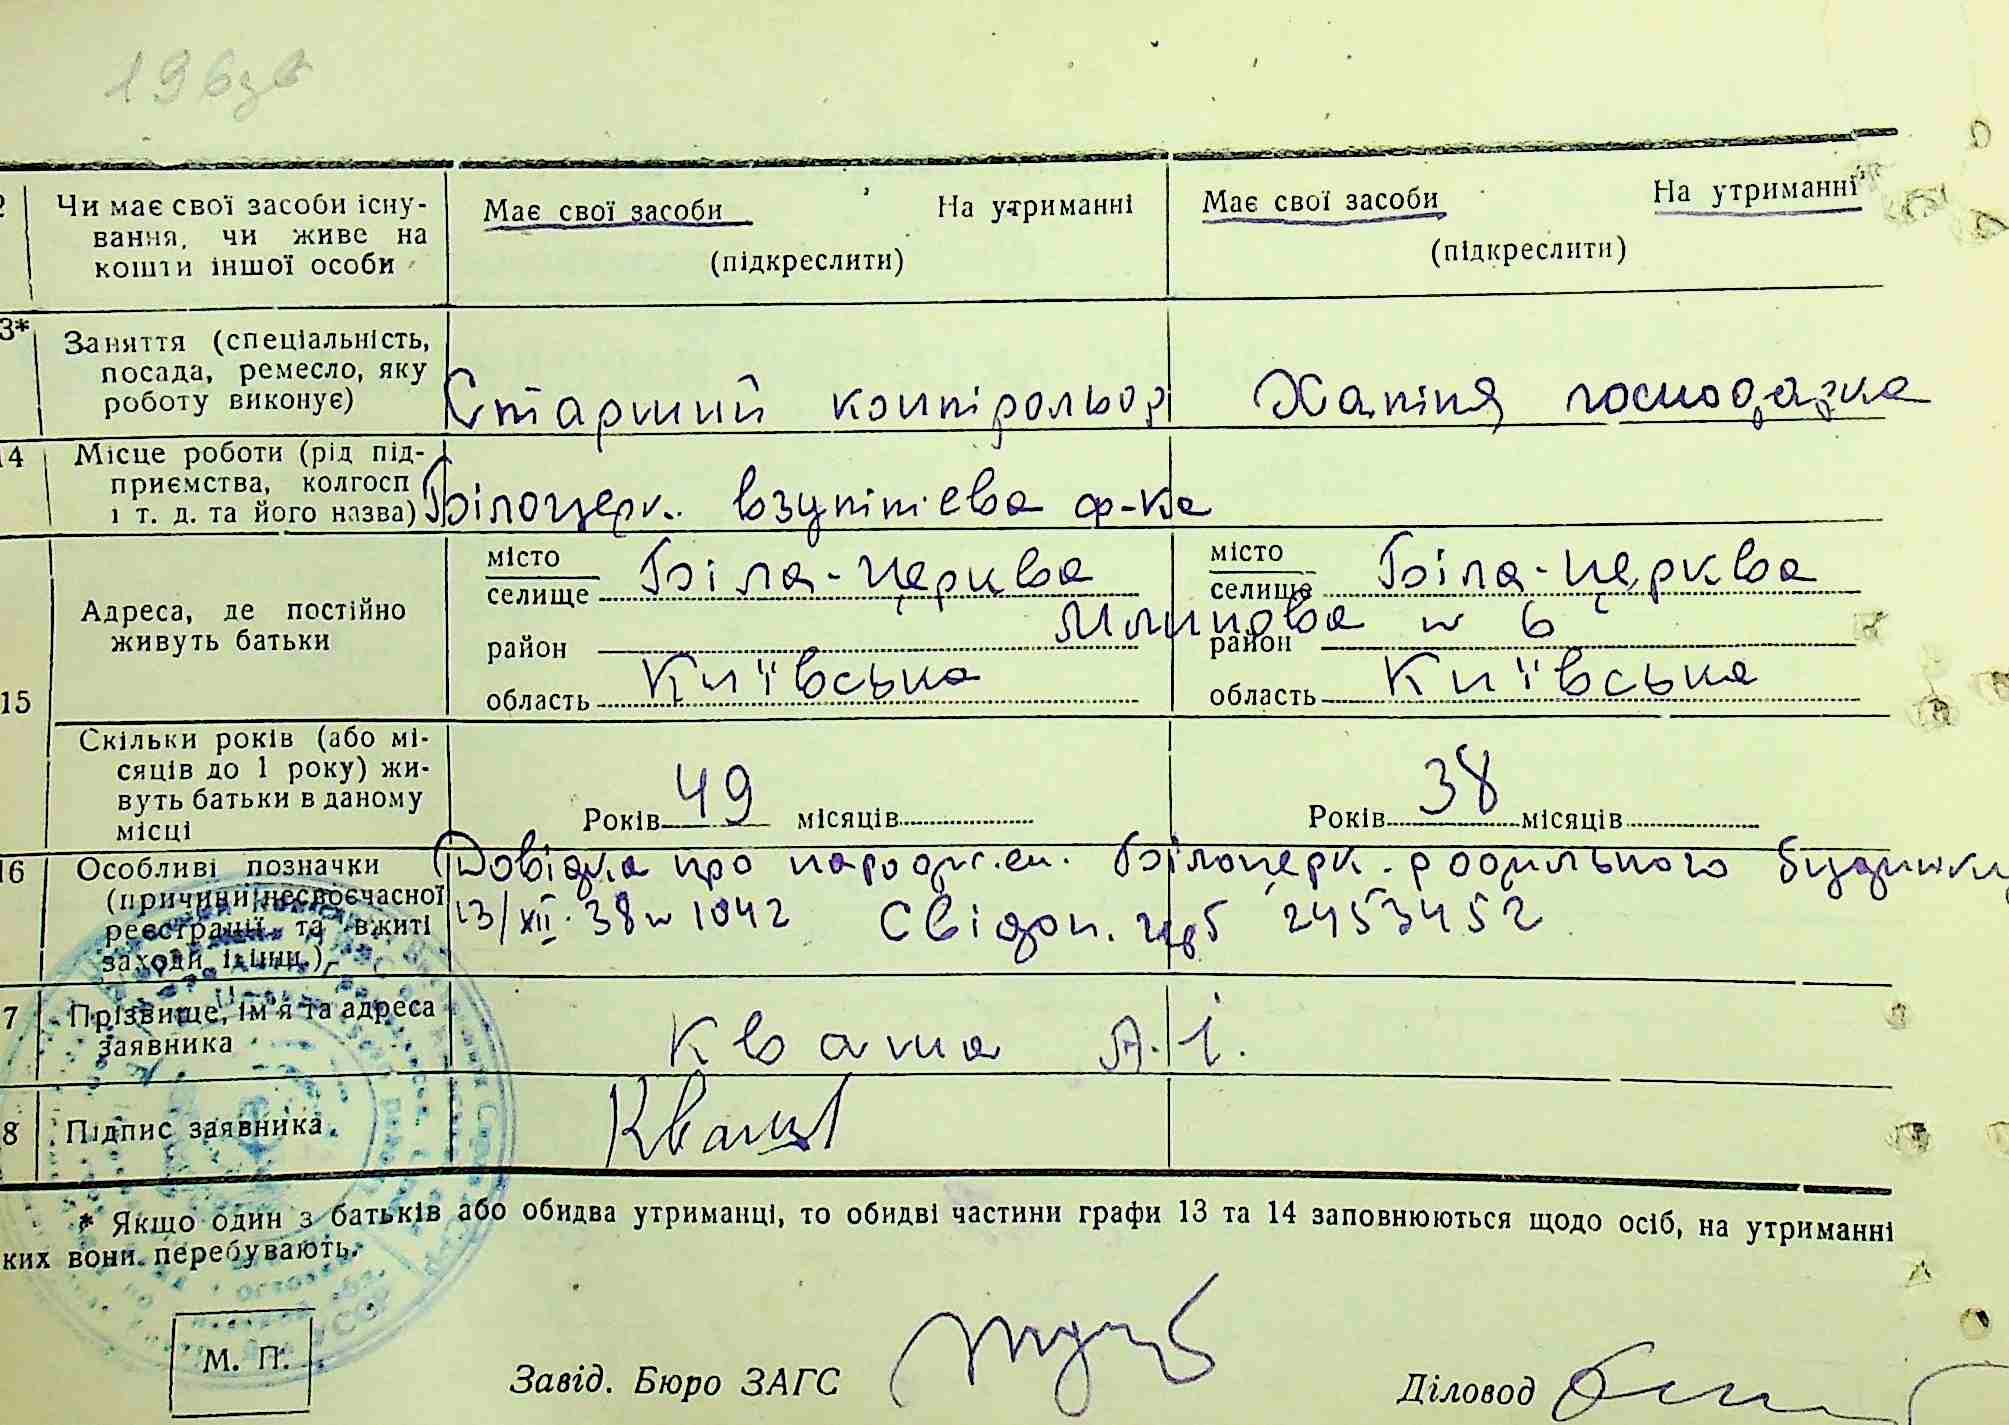 196зв
2 Чи має свої засоби існу-
вання, чи живе на
кошти іншої особи
Має свої засоби На утриманні
(підкреслити)
Має свої засоби На утриманні
(підкреслити)
3* Заняття (спеціальність,
посада, ремесло, яку
роботу виконує)
Старший контрольор Хатня господарка
14 Місце роботи (рід під-
приємства, колгосп
і т. д. та його назва)
Білоцерк. взуттєва ф-ка
15 Адреса, де постійно
живуть батьки
місто
селище Біла-Церква
район
область Київська
місто
селище Біла-Церква
Млинова № 6
район
область Київська
Скільки років (або мі-
сяців до 1 року) жи-
вуть батьки в даному
місці
Років 49 місяців
Років 38 місяців
16 Особливі позначки
(причини несвоєчасної
реєстрації та вжиті
заходи і інш.)
Довідка про народжен. Білоцерк. родильного будинку
13/XII 38 № 1042 Свідоц. 2453452
7 Прізвище, ім'я та адреса
заявника
Кваша А. І.
8 Підпис заявника
Кваша
* Якщо один з батьків або обидва утриманці, то обидві частини графи 13 та 14 заповнюються щодо осіб, на утриманні
ких вони перебувають.
М. П.
Завід. Бюро ЗАГС
Діловод